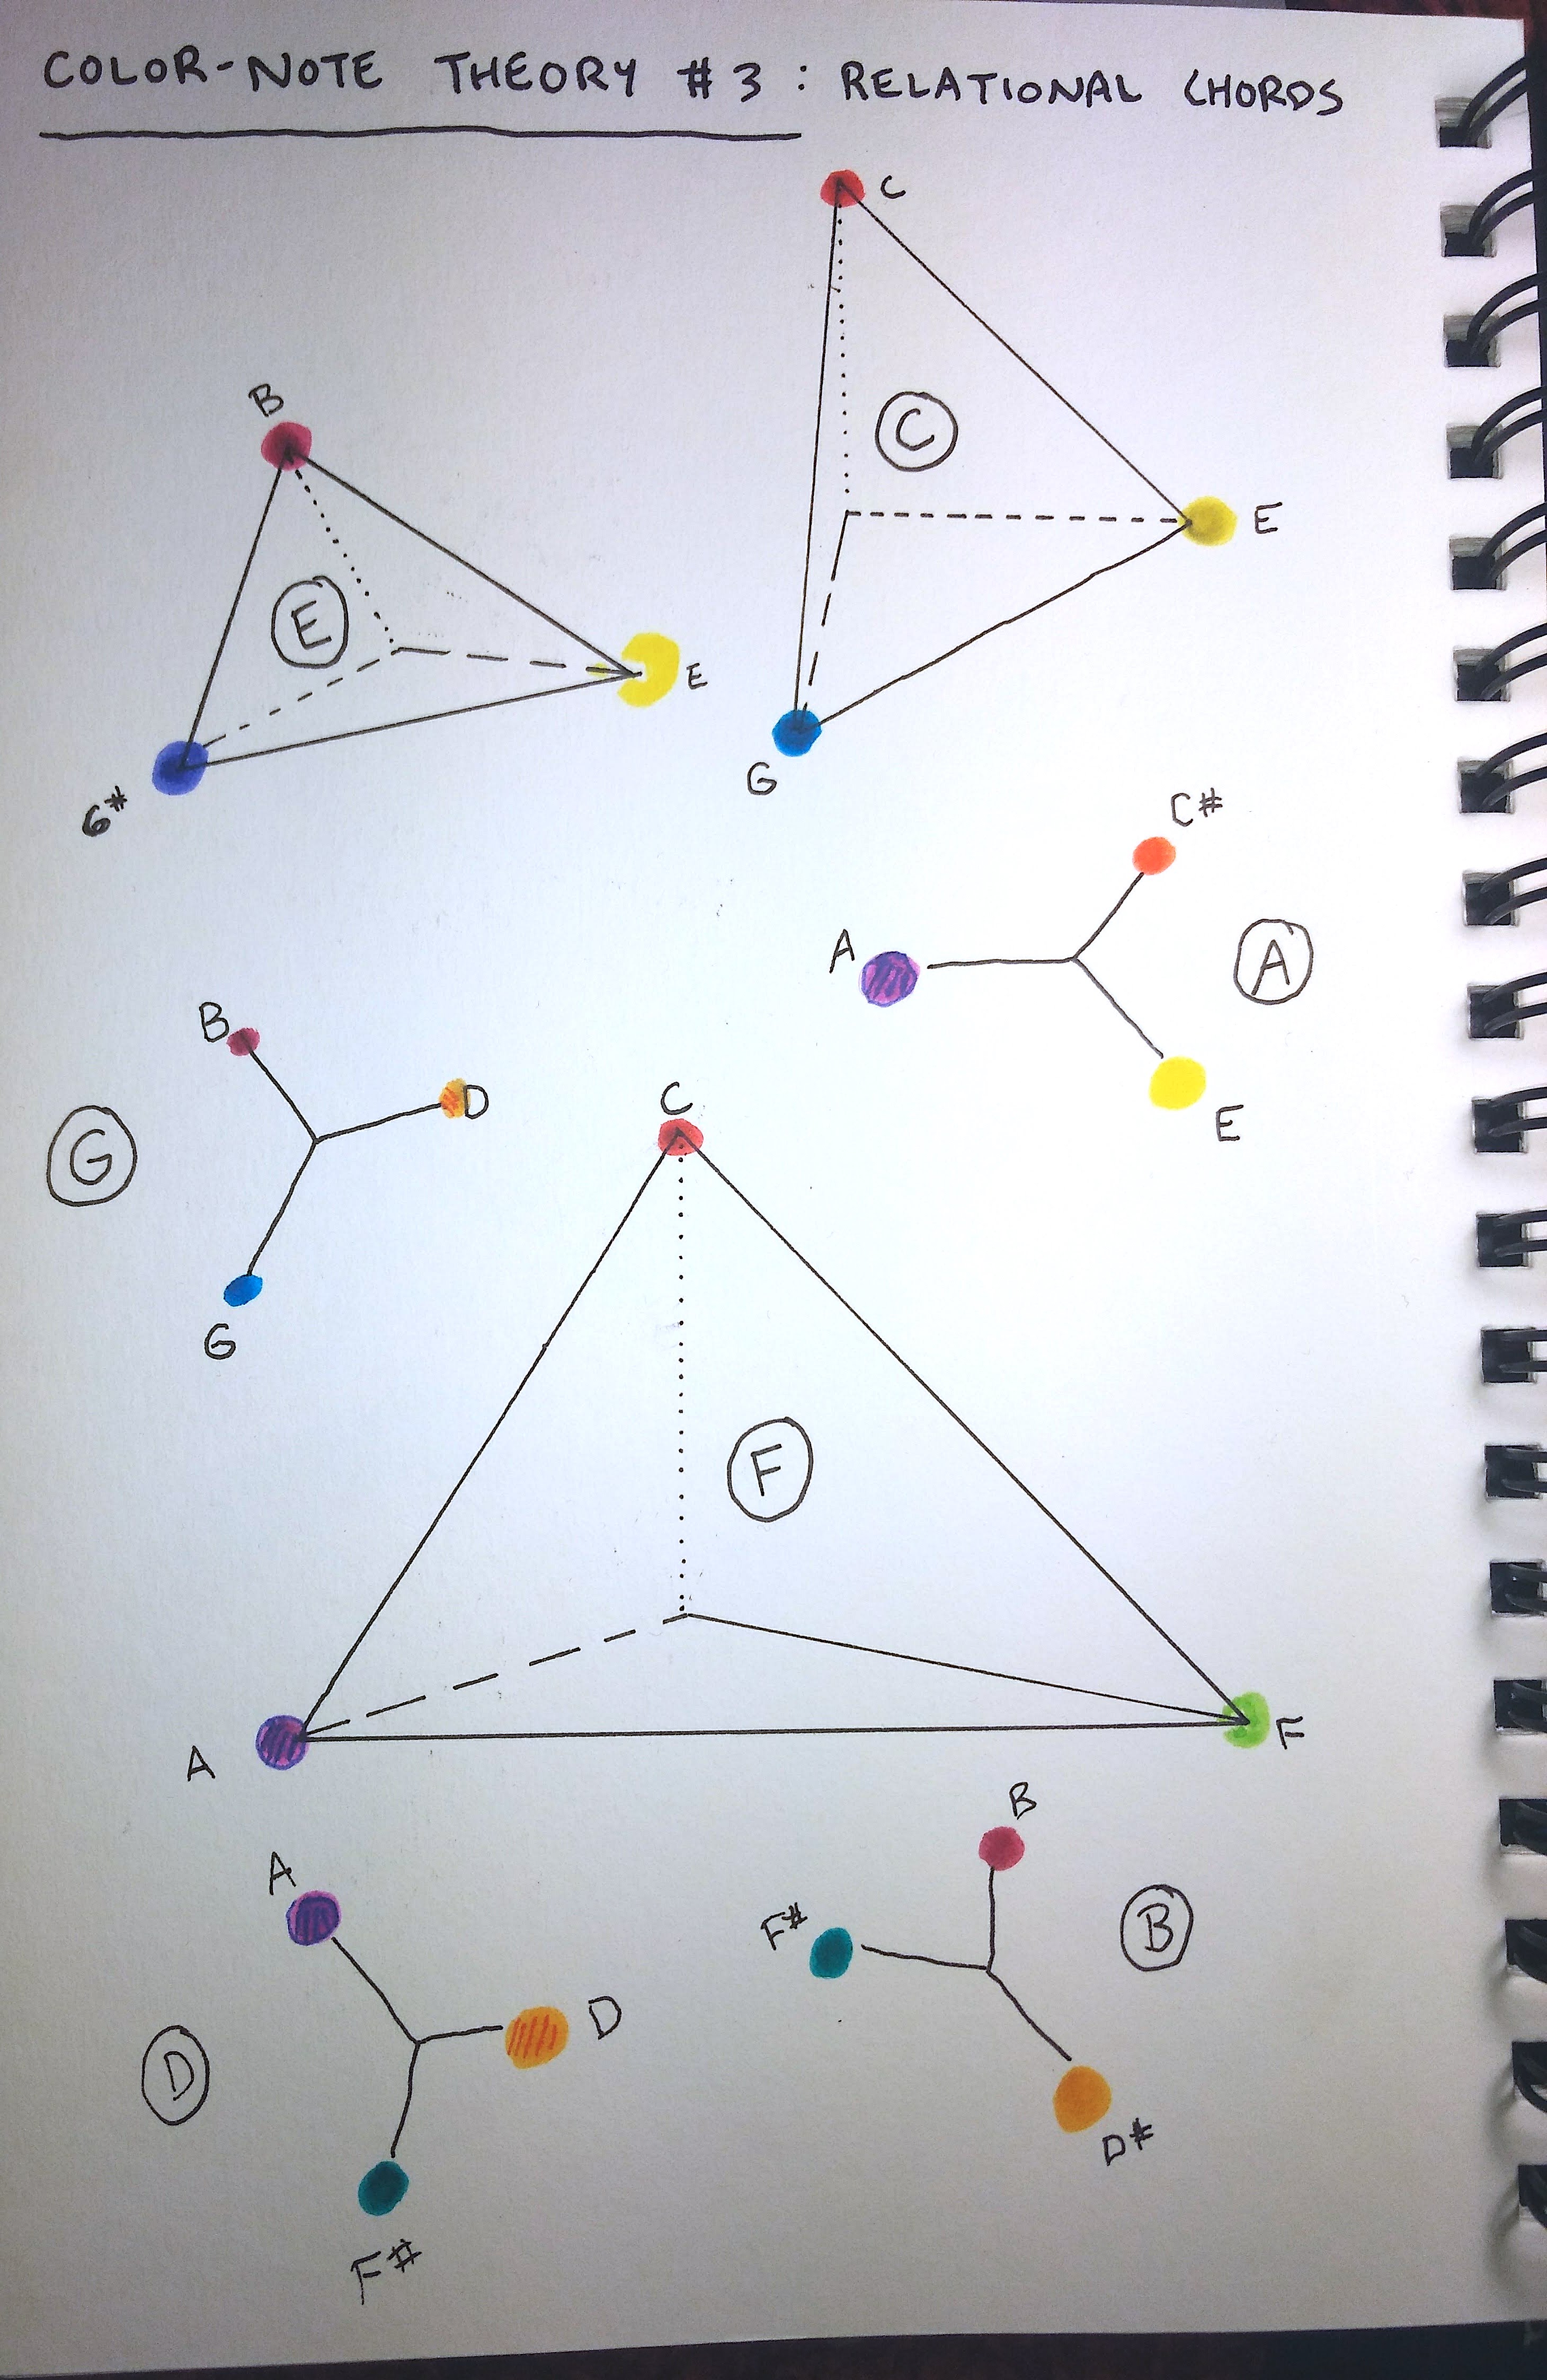 COLOR-NOTE THEORY #3: RELATIONAL CHORDS
C
C
E
G
B
E
E
G#
C#
A
A
E
B
D
G
G
C
F
A
F
A
D
D
F#
B
F#
B
D#